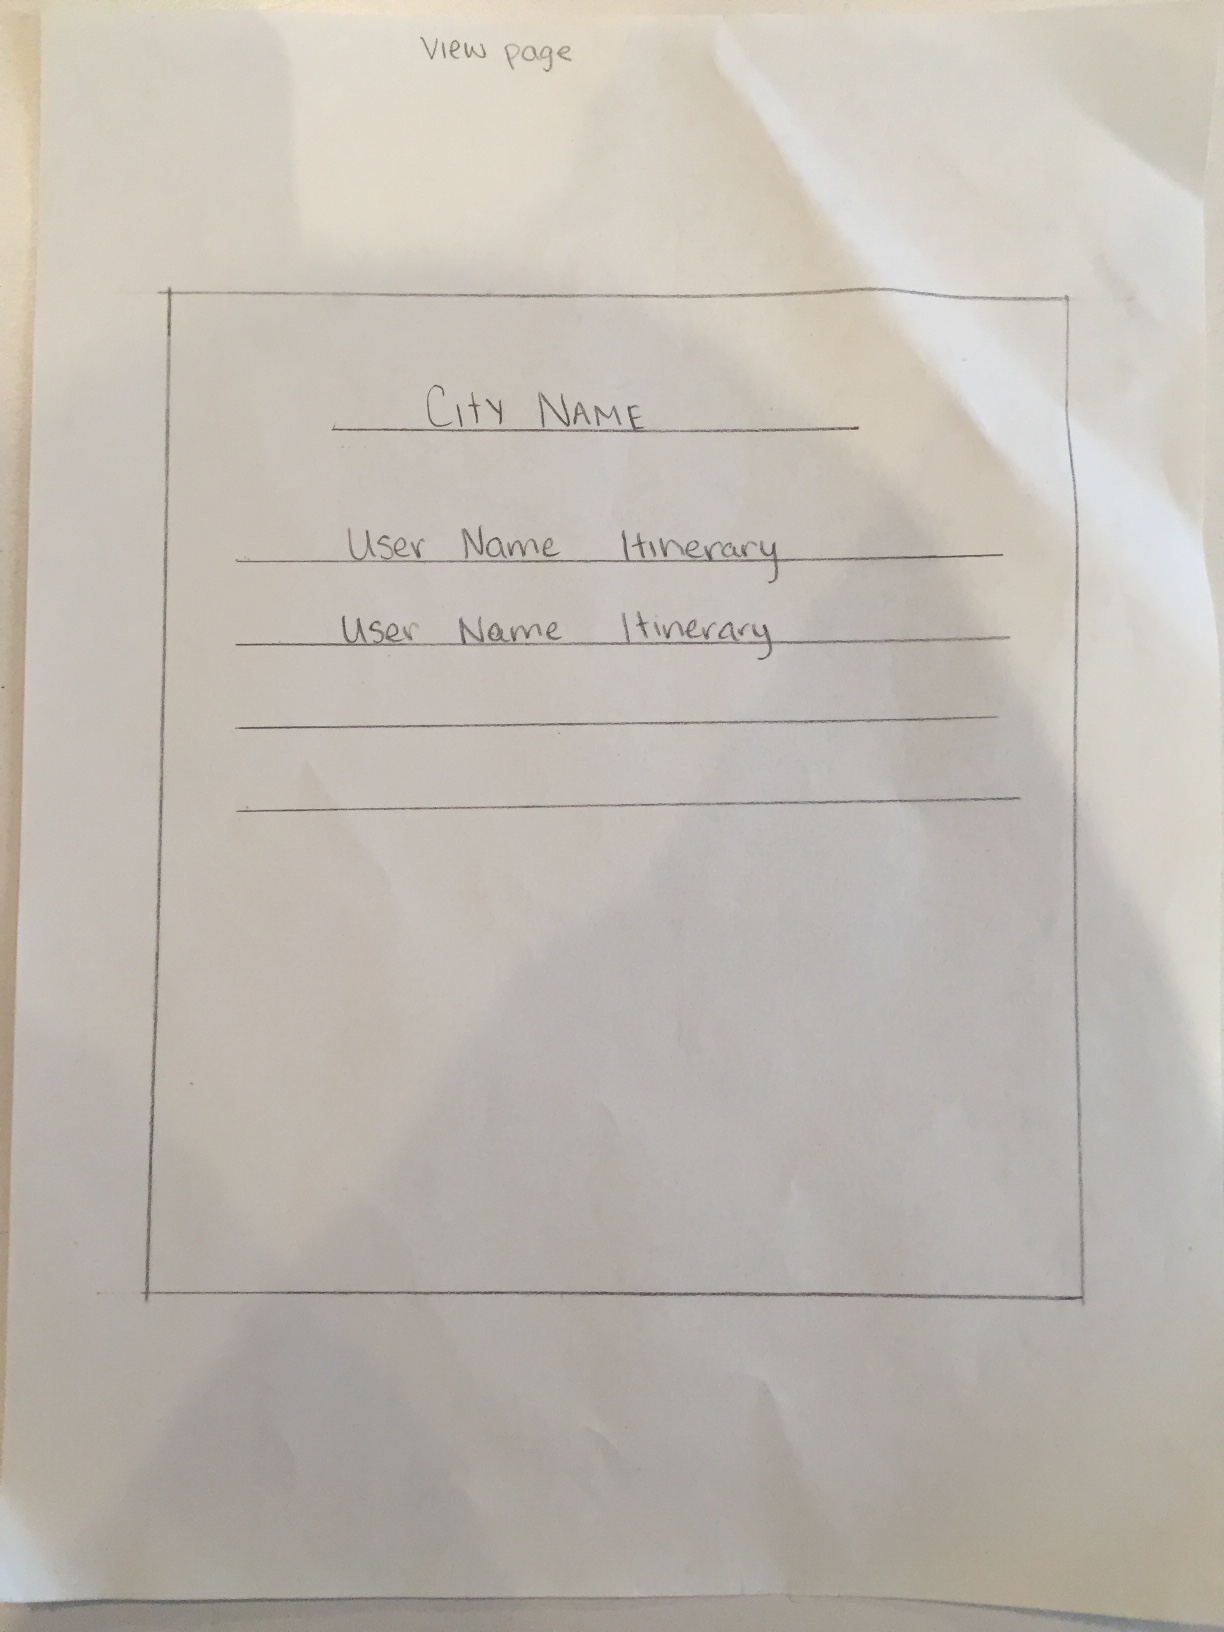 View page
City NAME
User Name Itinerary
User Name Itinerary